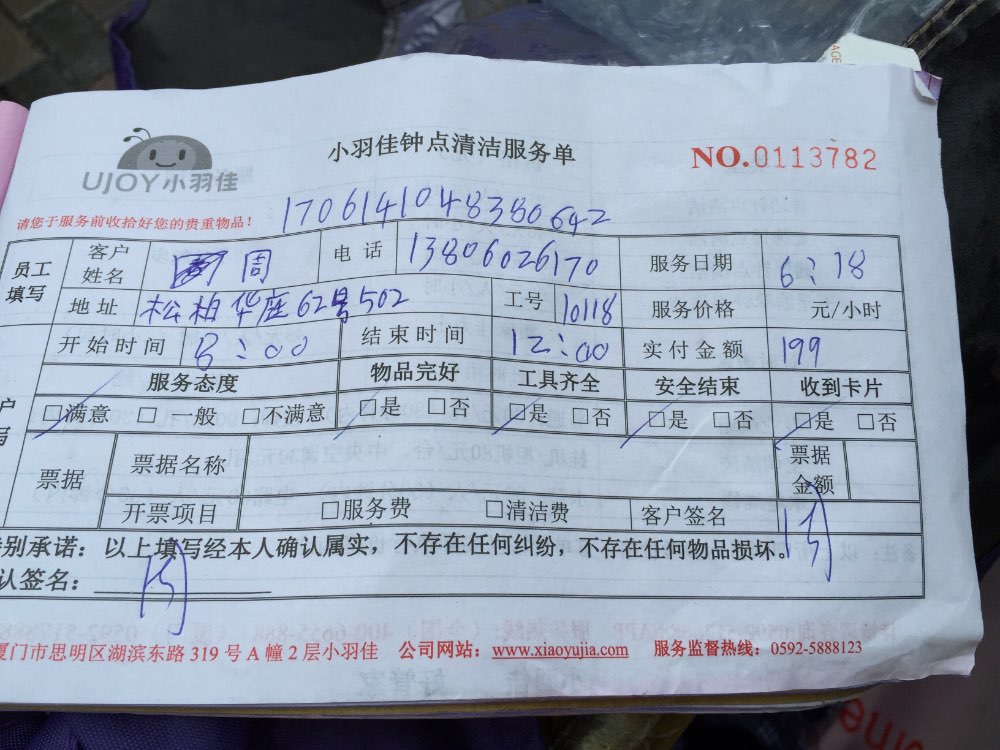 小羽佳钟点清洁服务单
NO.0113782
UJOY小羽佳
请您于服务前收拾好您的贵重物品！
1706141048380642
员工填写 客户姓名 周 电话 13806026170 服务日期 6:18
地址 松柏华庭62号502 工号 10118 服务价格 元/小时
开始时间 8:00 结束时间 12:00 实付金额 199
服务态度 物品完好 工具齐全 安全结束 收到卡片
□满意 □一般 □不满意 □是 □否 □是 □否 □是 □否 □是 □否
票据 票据名称 票据金额
开票项目 □服务费 □清洁费 客户签名 周
别承诺：以上填写经本人确认属实，不存在任何纠纷，不存在任何物品损坏。
认签名： 周
厦门市思明区湖滨东路319号A幢2层小羽佳 公司网站：www.xiaoyujia.com 服务监督热线：0592-5888123